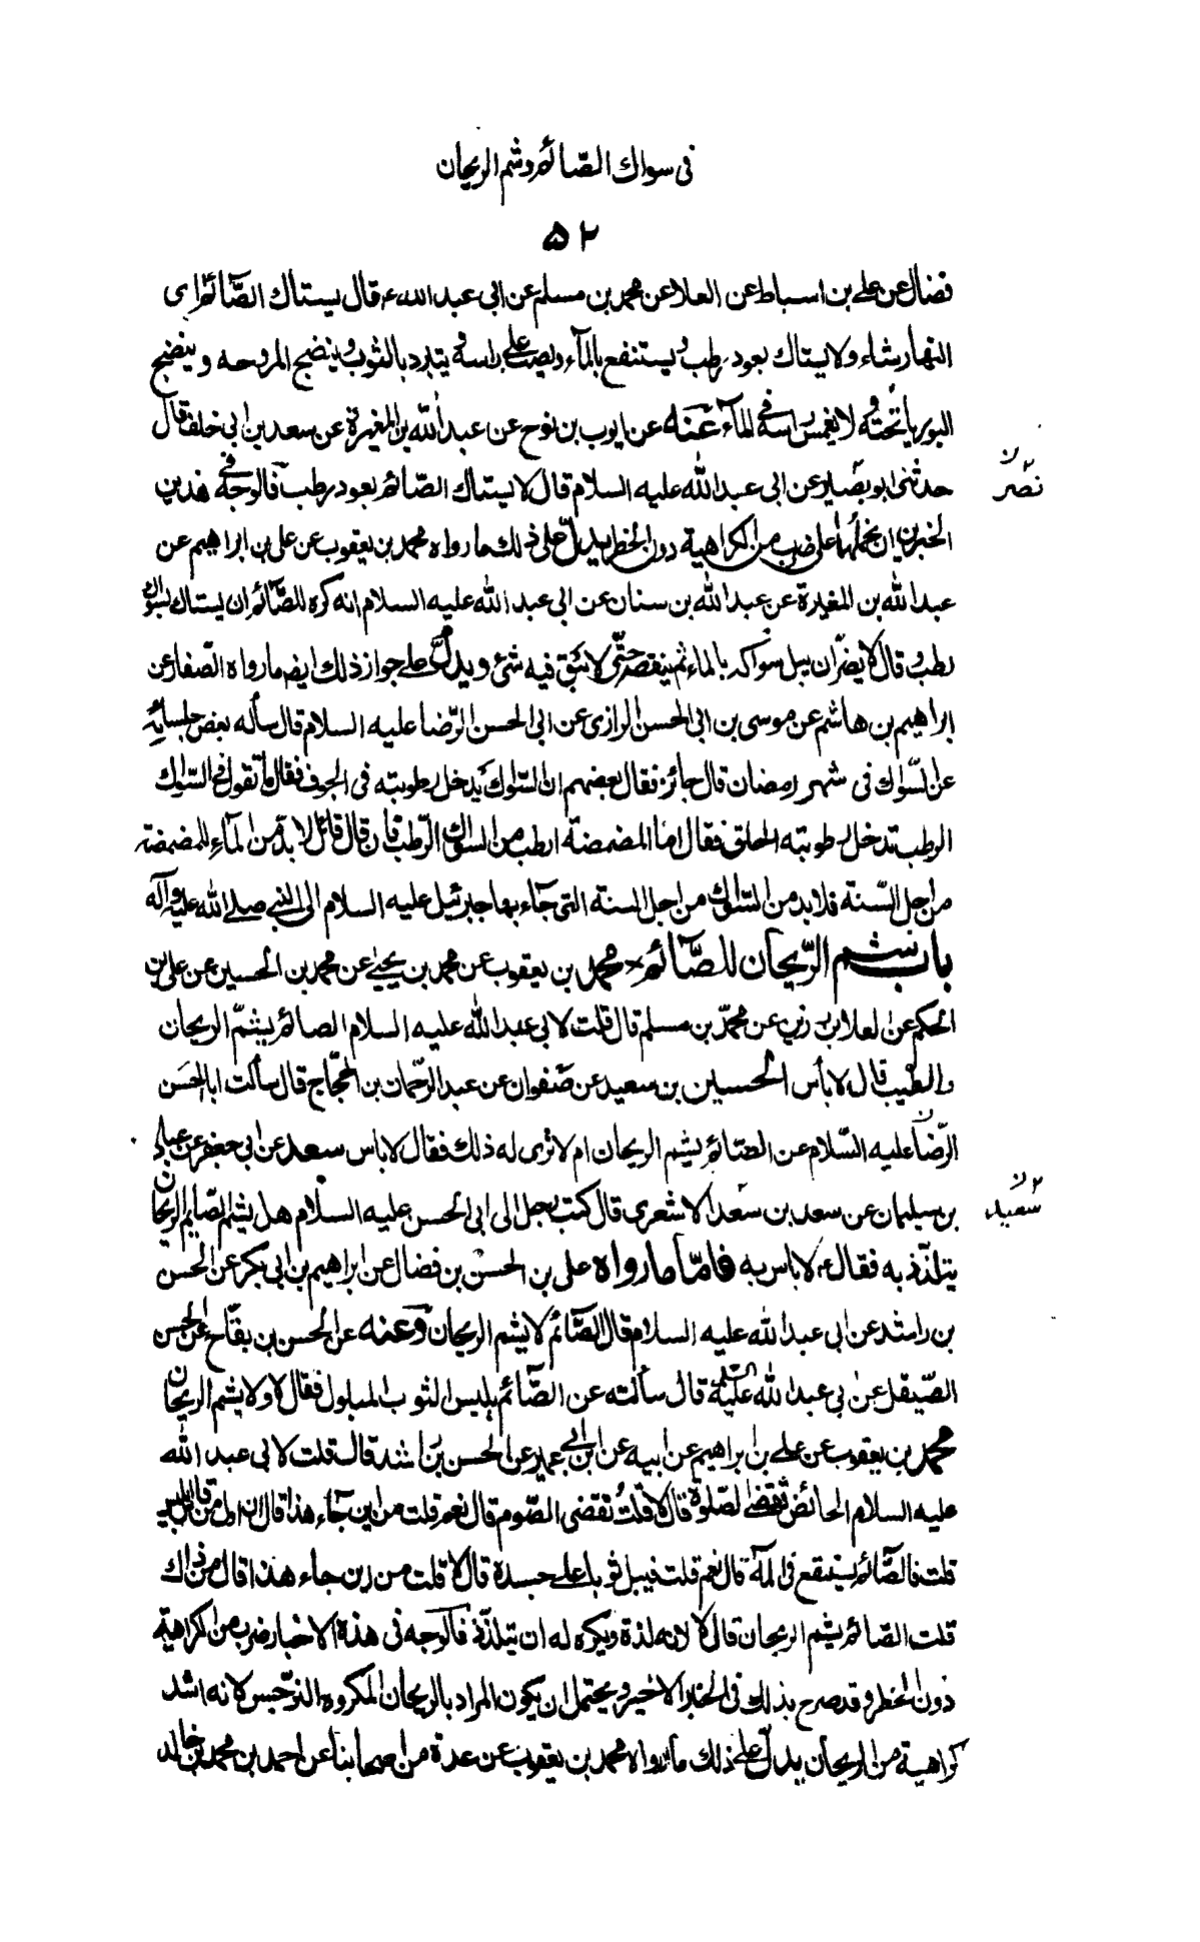 فى سواك الصّائم وشم الريحان
۵۲
فضال عن على بن اسباط عن العلا عن محمد بن مسلم عن ابى عبد الله ع قال يستاك الصّآئم اى
النهار شاء ولا يستاك بعود رطب و يستنقع بالمآء ويصب على راسه و يتبرد بالثوب وينضح المروحه وينضح
البوريا تحته ولا يغمس راسه فى المآء عَنه عن ايوب بن نوح عن عبد الله بن المغيرة عن سعد بن ابى خلف قال
حدثنى ابو بصير عن ابى عبد الله عليه السلام قال لا يستاك الصّائم بعود رطب فالوجه فى هذين
نصر
الخبرين ان نحملهما على ضرب من الكراهية دون الحظر يدلّ على ذلك ما رواه محمد بن يعقوب عن على بن ابراهيم عن
عبد الله بن المغيرة عن عبد الله بن سنان عن ابى عبد الله عليه السلام انه كره للصّآئم ان يستاك بسواك
رطب وقال لا يضرّ ان يبل سواكه بالماء ثم ينفضه حتّى لا يبقى فيه شئ ويدلّ على جواز ذلك ايضا ما رواه الصّفار عن
ابراهيم بن هاشم عن موسى بن ابى الحسن الرازى عن ابى الحسن الرّضا عليه السلام قال سأله بعض جلسائه
عن السّواك فى شهر رمضان قال جائز فقال بعضهم ان السّواك يدخل رطوبته فى الجوف فقال ما تقول فى السّواك
الرطب تدخل رطوبته الحلق فقال الماء للمضمضة ارطب من السواك الرّطب فان قال قائل لا بدّ من المآء للمضمضة
من اجل السّنة فلا بد من السّواك من اجل السنة التى جآء بها جبرئيل عليه السلام الى النبى صلى الله عليه وآله
باب شم الرّيحان للصّآئم محمد بن يعقوب عن محمد بن يحيى عن محمد بن الحسين عن على بن
الحكم عن العلا بن رزين عن محمّد بن مسلم قال قلت لابى عبد الله عليه السلام الصائم يشمّ الريحان
والطيب قال لا بأس الحسين بن سعيد عن صَفوان عن عبد الرّحمان بن الحجّاج قال سألت ابا الحسَن
الرّضا عليه السّلام عن الصّائم يشم الريحان ام لا ترى له ذلك فقال لا باس سعد عن ابى جعفر عن عباد
بن سليمان عن سعد بن سَعد الاشعرى قال كتب رجل الى ابى الحسن عليه السلام هل يشم الصّايم الريحان
سعيد
يتلذّذ به فقال ع لا باس به فامّا ما رواه على بن الحسن بن فضال عن ابراهيم بن ابى بكر عن الحسن
بن راشد عن ابى عبد الله عليه السلام قال الصّآئم لا يشم الريحان وعنه عن الحسن بن بقّاح عن الحسن
الصّيقل عن ابى عبد الله عليه السلم قال سألته عن الصّآئم يلبس الثوب المبلول فقال لا ولا يشم الريحان
محمد بن يعقوب عن على بن ابراهيم عن ابيه عن ابن ابى عمير عن الحسن بن راشد قال قلت لابى عبد الله
عليه السلام الحائض تقضى الصّلوة قال لا قلت تقضى الصّوم قال نعم قلت من اين جآء هذا قال ان اول من قاس ابليس
قلت فالصّآئم يستنقع فى المآء قال نعم قلت فيبل ثوبا على جسده قال لا قلت من اين جاء هذا قال من ذاك
قلت الصّائم يشم الريحان قال لا لانه لذة ويكره له ان يتلذّذ فالوجه فى هذه الاخبار ضرب من الكراهية
دون الحظر وقد صرح بذلك فى الخبر الاخير و يحتمل ان يكون المراد بالريحان المكروه النرجس لانه اشد
كراهية من الريحان يدلّ على ذلك ما رواه محمد بن يعقوب عن عدة من اصحابنا عن احمد بن محمد بن خالد